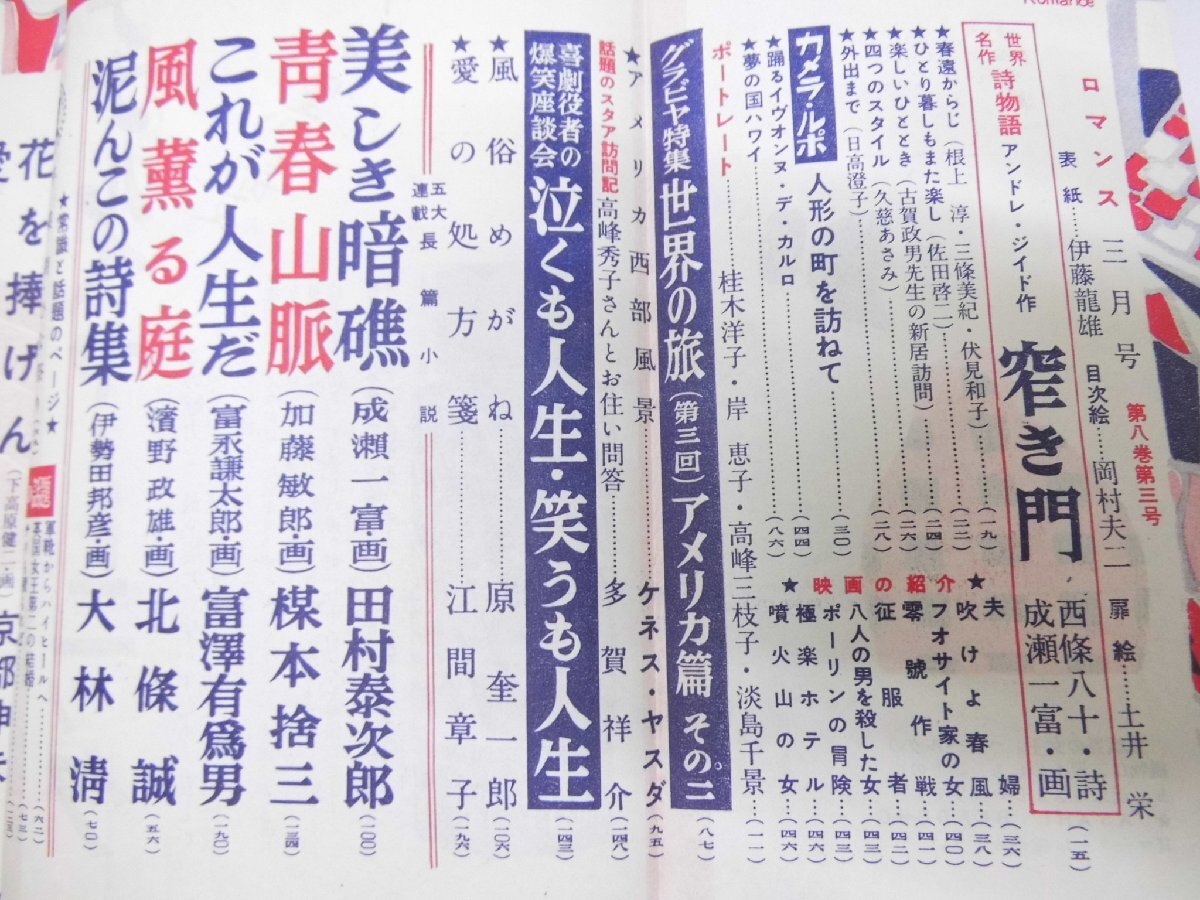 Romance
ロマンス 三月号 第八巻第三号
表紙……伊藤龍雄 目次絵……岡村夫二 扉絵……土井栄
世界名作 詩物語 アンドレ・ジイド作 窄き門 西條八十・詩 成瀬一富・画 (一一五)
★春遠からじ(根上淳・三條美紀・伏見和子)……(一九)
★ひとり暮しもまた楽し(佐田啓二)……(二二)
★楽しいひととき(古賀政男先生の新居訪問)……(二四)
★四つのスタイル(久慈あさみ)……(二六)
★外出まで(日高澄子)……(二八)
カメラ・ルポ 人形の町を訪ねて……(三〇)
★踊るイヴオンヌ・デ・カルロ……(四四)
★夢の国ハワイ……(八六)
★映画の紹介★
夫婦…(三六)
吹けよ春風…(三八)
フオサイト家の女…(四〇)
零號作戦…(四一)
征服者…(四二)
八人の男を殺した女…(四三)
ポーリンの冒険…(四三)
極楽ホテル…(四六)
噴火山の女…(四六)
ポートレート……桂木洋子・岸恵子・高峰三枝子・淡島千景…(一一)
グラビヤ特集 世界の旅(第三回)アメリカ篇 その二 (八七)
★アメリカ西部風景……ケネス・ヤスダ(九五)
話題のスタア訪問記 高峰秀子さんとお住い問答……多賀祥介(一四八)
喜劇役者の爆笑座談会 泣くも人生・笑うも人生 (一四三)
★風俗めがね……原奎一郎(一〇六)
★愛の処方箋……江間章子(一九六)
五大連載長篇小説
美しき暗礁(成瀬一富・画)田村泰次郎(一〇〇)
青春山脈(加藤敏郎・画)楳本捨三(一三四)
これが人生だ(富永謙太郎・画)富澤有爲男(一九〇)
風薫る庭(濱野政雄・画)北條誠(五六)
泥んこの詩集(伊勢田邦彦・画)大林清(七〇)
★常識と話題のページ★
軍靴からハイヒールへ…(六二)
英国女王第二の結婚…(七三)
花を捧げん
(下高原健二・画)